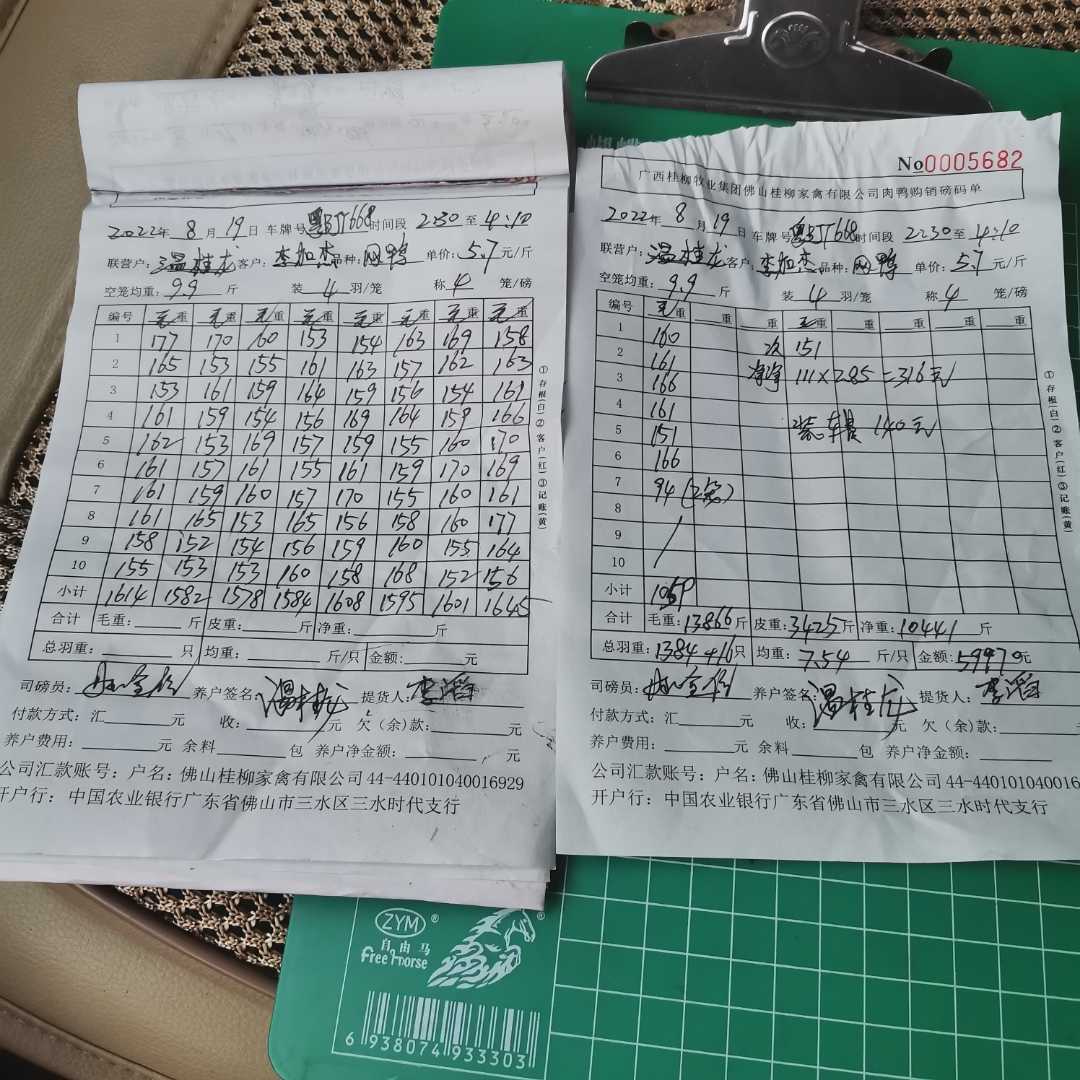 2022年 8月 19日 车牌号 668 时间段 2230 至 4:10
联营户: 温桂龙 客户: 李加杰 品种: 网鸭 单价: 5.7 元/斤
空笼均重: 9.9 斤 装 4 羽/笼 称 4 笼/磅
编号 毛重 毛重 毛重 毛重 毛重 毛重 毛重 毛重
1 177 170 160 153 154 163 169 158
2 165 153 155 161 163 157 162 163
3 153 161 159 164 159 156 154 161
4 161 159 154 156 169 164 159 166
5 162 153 169 157 159 155 160 170
6 161 157 161 155 161 159 170 169
7 161 159 160 157 170 155 160 161
8 161 165 153 165 156 158 160 177
9 158 152 154 156 159 160 155 164
10 155 153 153 160 158 168 152 156
小计 1614 1582 1578 1584 1608 1595 1601 1645
合计 毛重: 斤 皮重: 斤 净重: 斤
总羽重: 只 均重: 斤/只 金额: 元
司磅员: 养户签名: 温桂龙 提货人: 李滔
付款方式: 汇 元 收: 元 欠(余)款:
养户费用: 元 余料 包 养户净金额: 元
公司汇款账号: 户名: 佛山桂柳家禽有限公司 44-440101040016929
开户行: 中国农业银行广东省佛山市三水区三水时代支行
①存根(白)②客户(红)③记账(黄)
No 0005682
广西桂柳牧业集团佛山桂柳家禽有限公司肉鸭购销磅码单
2022年 8月 19日 车牌号 668 时间段 2230 至 4:10
联营户: 温桂龙 客户: 李加杰 品种: 网鸭 单价: 5.7 元/斤
空笼均重: 9.9 斤 装 4 羽/笼 称 4 笼/磅
编号 毛重 重 重 毛重 重 重 重 重
1 160
2 161 次 151
3 166 净 111×2.85=316元
4 161
5 151 装车费 140元
6 166
7 94 (2笼)
8
9
10
小计 1059
合计 毛重: 13866 斤 皮重: 3425 斤 净重: 10441 斤
总羽重: 1384+16 只 均重: 7.54 斤/只 金额: 59970 元
司磅员: 养户签名: 温桂龙 提货人: 李滔
付款方式: 汇 元 收: 元 欠(余)款:
养户费用: 元 余料 包 养户净金额:
公司汇款账号: 户名: 佛山桂柳家禽有限公司 44-440101040016
开户行: 中国农业银行广东省佛山市三水区三水时代支行
①存根(白)②客户(红)③记账(黄)
ZYM®
自由马
Free horse
6 938074 933303